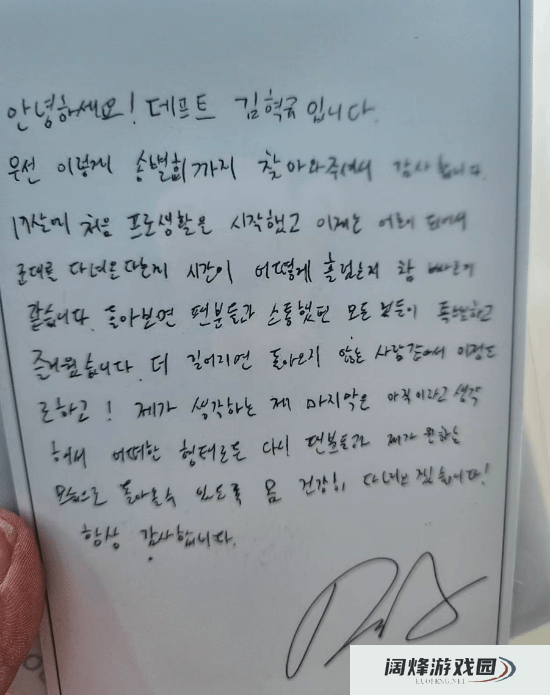 안녕하세요! 데프트 김혁규입니다.
우선 이렇게 송별회까지 찾아와주셔서 감사합니다.
17살에 처음 프로생활을 시작했고 이제는 어른이 되어서
군대를 다녀온다는지 시간이 어떻게 흘렀는지 참 빠른거
같습니다. 돌아보면 팬분들과 소통했던 모든 것들이 특별하고
즐거웠습니다. 더 길어지면 돌아오지 않는 사람같아서 이정도
로하고! 제가 생각하는 제 마지막은 아직이라고 생각
해서 어떠한 형태로든 다시 팬분들과 제가 원하는
모습으로 돌아올수 있도록 몸 건강히 다녀오겠습니다!
항상 감사합니다.
阔烽游戏园